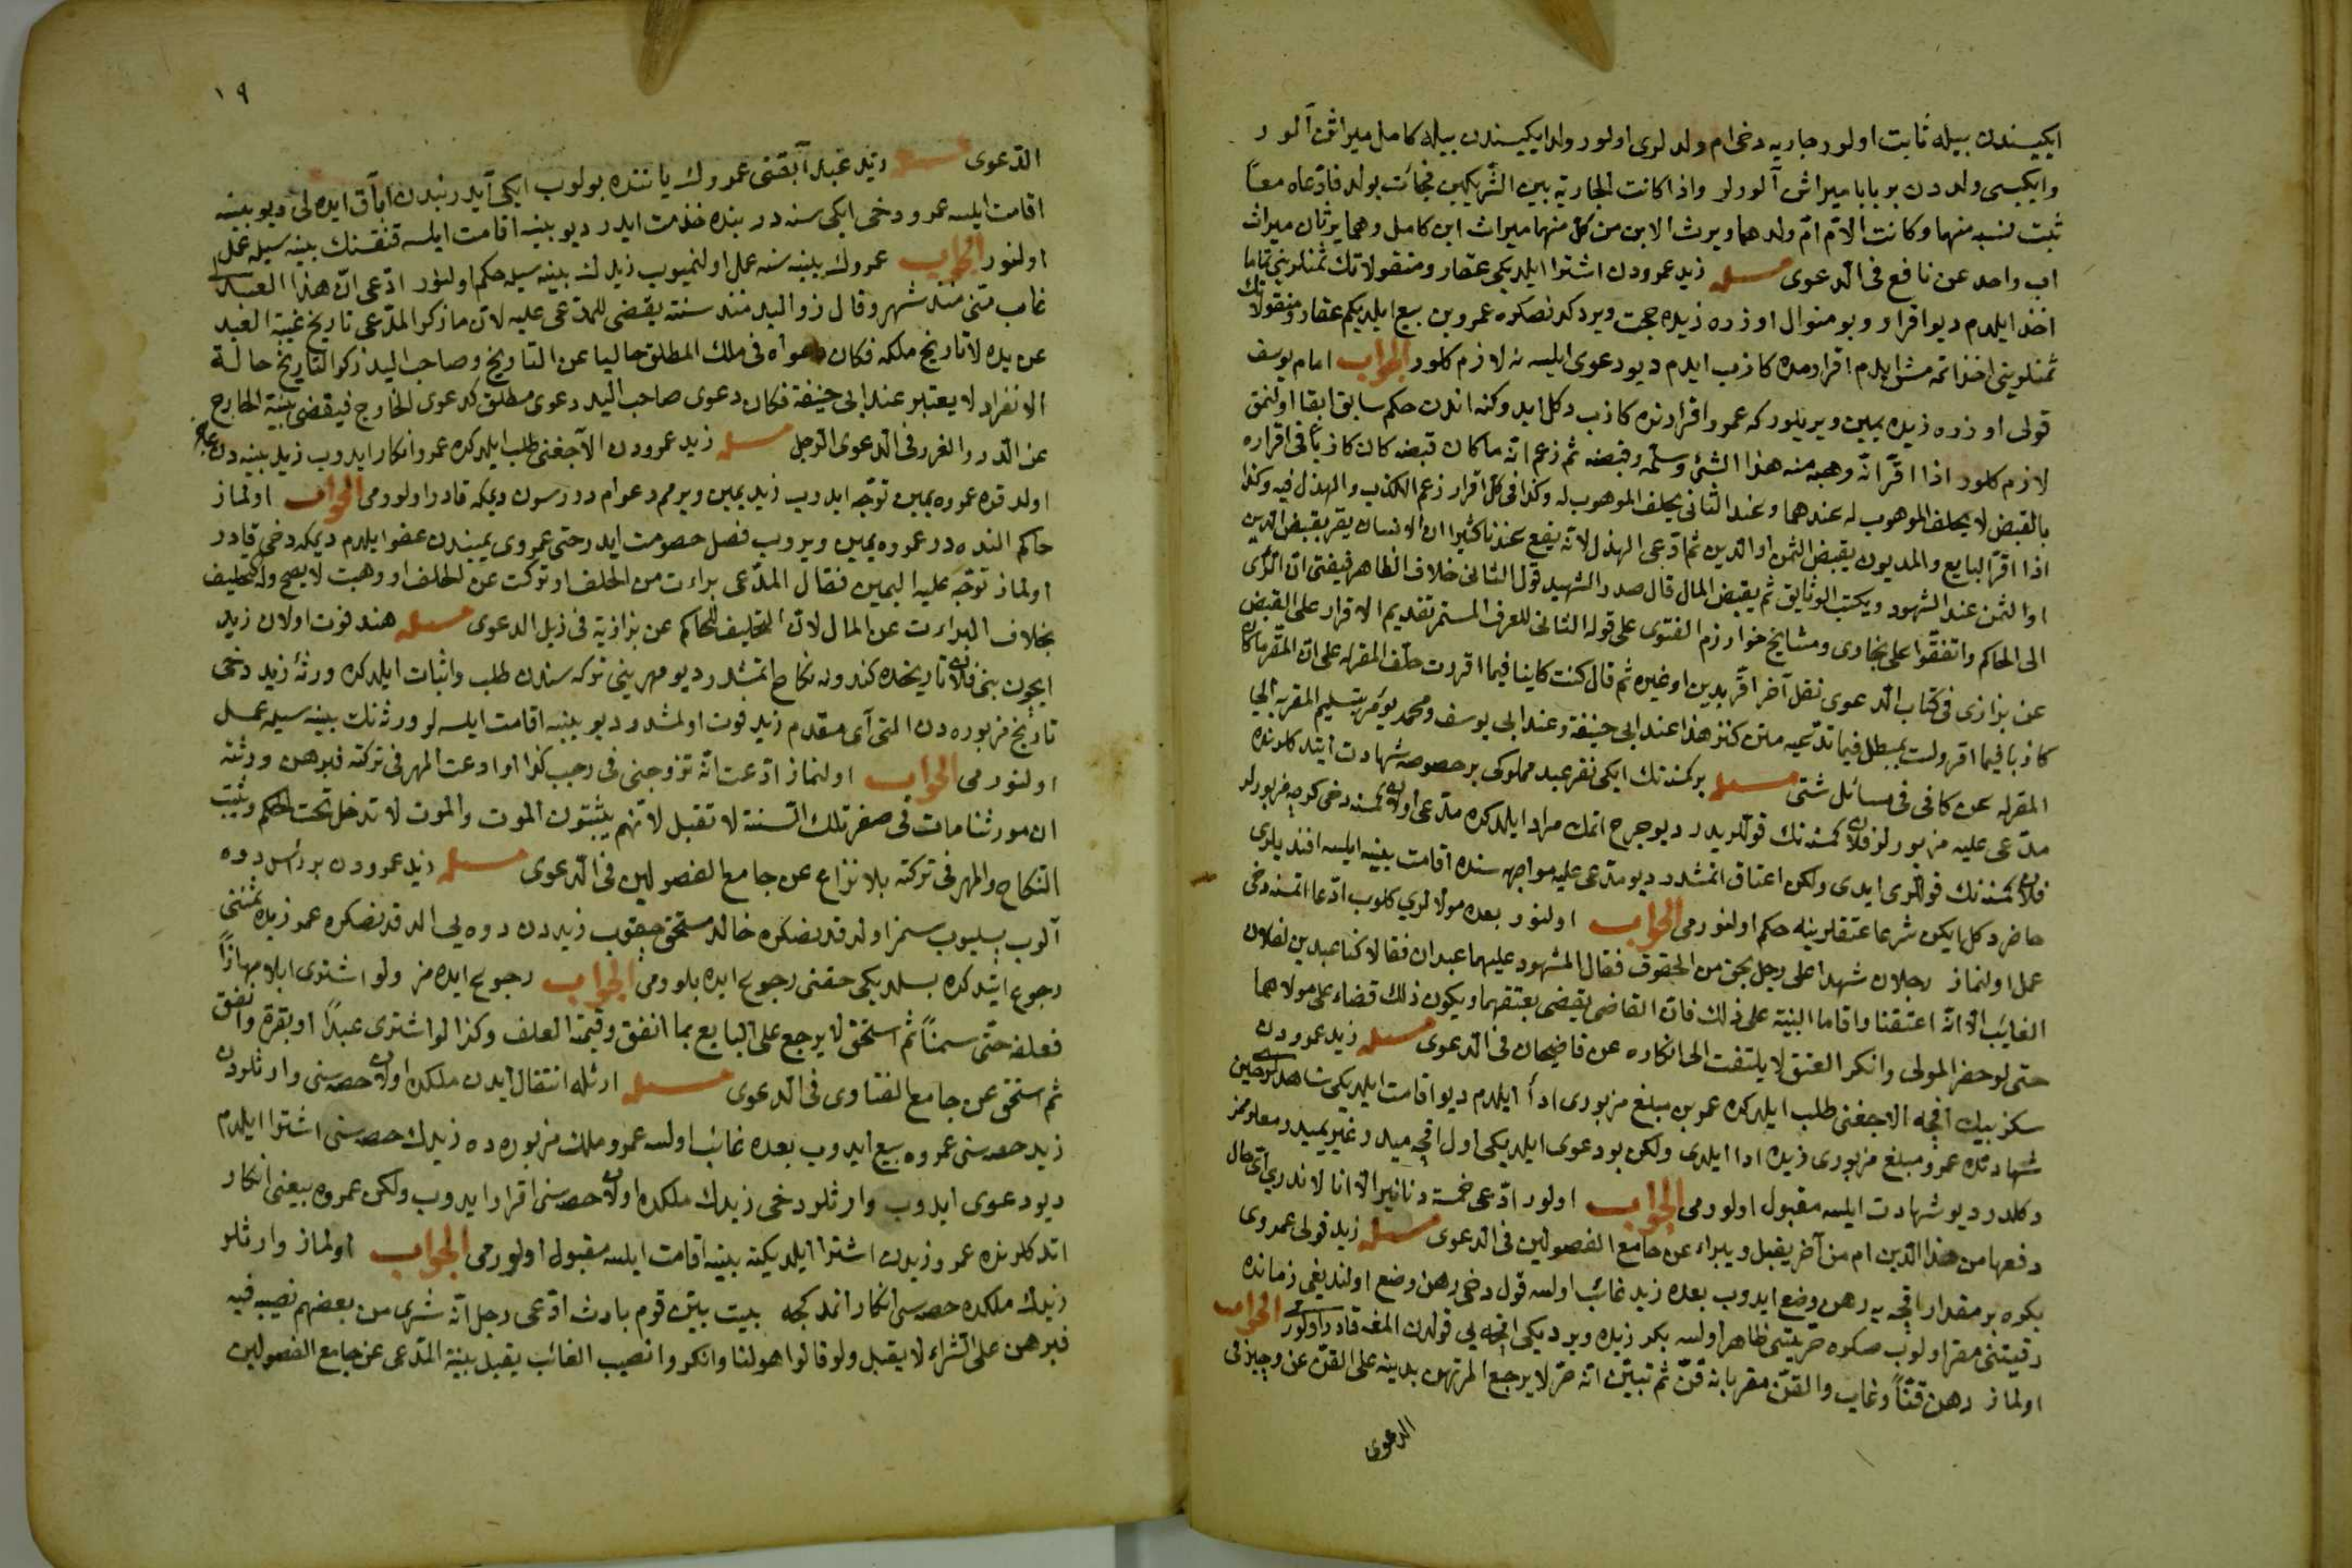 ايكيسندن بيله ثابت اولور جاريه دخى ام ولد لرى اولور ولد ايكيسندن بيله كامل ميراثن آلور
وايكيسى ولددن بر بابا ميراثن آلورلر واذا كانت الجارية بين الشريكين فجائت بولد فادعاه معًا
ثبت نسبه منهما وكانت الام ام ولد لهما ويرث الابن من كل منهما ميراث ابن كامل وهما يرثان ميراث
اب واحد عن نافع فى الدعوى مسئله زيد عمرودن اشترا ايلديكى عقار ومنقولاتك ثمنلرينى تماما
اخذ ايلدم ديو اقرار وبو منوال اوزره زيده حجت ويردكدنصكره عمرو بن بيع ايلديكم عقار ومنقولاتك
ثمنلرينى اخذ اتمه مش ايدم اقرارمده كاذب ايدم ديو دعوى ايلسه نه لازم كلور الجواب امام يوسف
قولى اوزره زيده يمين ويريلور كه عمرو اقرارنده كاذب دكل ايدوكنه اندن حكم سابق ابقا اولنمق
لازم كلور اذا اقر انه وهبه منه هذا الشئ وسلمه وقبضه ثم زعم انه ما كان قبضه كان كاذبا فى اقراره
بالقبض لا يحلف الموهوب له عندهما وعند الثانى يحلف الموهوب له وكذا فى كل اقرار زعم الكذب والهزل فيه وكذا
اذا اقر البايع والمديون بقبض الثمن او الدين ثم ادعى الهزل لانه يقع عندنا كثيرا ان الانسان يقر بقبض الدين
او الثمن عند الشهود ويكتب الوثايق ثم يقبض المال قال صدر الشهيد قول الثانى خلاف الظاهر فيفتى ان الرأى
الى الحاكم واتفقوا على بخارى ومشايخ خوارزم الفتوى على قوله الثانى للعرف المستمر تقديم الاقرار على القبض
عن بزازى فى كتاب الدعوى نقل آخر اقر بدين او غيره ثم قال كنت كاذبا فيما اقررت حلف المقر له على ان المقر ما كان
كاذبا فيما اقر ولست بمبطل فيما تدعيه متن كنز هذا عند ابى حنيفة وعند ابى يوسف ومحمد يؤمر بتسليم المقر به الى
المقر له عن كافى فى مسائل شتى مسئله بركمسنه نك ايكى نفر عبد مملوكى بر خصوصه شهادت ايتدكلرنده
مدعى عليه مزبورلر فلان كمسنه نك قوللريدر ديو جرح اتمك مراد ايلدكده مدعى اولان كمسنه دخى كرچه مزبورلر
فلان كمسنه نك قوللرى ايدى ولكن اعتاق اتمشدر ديو مدعى عليه مواجهه سنده اقامت بينه ايلسه افنديلرى
حاضر دكل ايكن شرعا عتقلرينه حكم اولنورمى الجواب اولنور بعده مولالرى كلوب ادعا اتمسنه دخى
عمل اولنماز رجلان شهدا على رجل بحق من الحقوق فقال المشهود عليه هما عبدان فقالا كنا عبدين لفلان
الغائب الا انه اعتقنا واقاما البينة على ذلك فان القاضى يقضى بعتقهما ويكون ذلك قضاء على مولاهما
حتى لو حضر المولى وانكر العتق لا يلتفت الى انكاره عن قاضيخان فى الدعوى مسئله زيد عمرودن
سكز بيك اقچه الاجغنى طلب ايلدكده عمرو بن مبلغ مزبورى ادا ايلدم ديو اقامت ايلديكى شاهدلر حين
شهادتده عمرو مبلغ مزبورى زيده ادا ايلدى ولكن بو دعوى ايلديكى اول اقچه ميدر غيرى ميدر معلومز
دكلدر ديو شهادت ايلسه مقبول اولورمى الجواب اولور ادعى خمسة دنانير الا انا لا ندرى اى حال
دفعها من هذا الدين ام من آخر يقبل ويبراء عن جامع الفصولين فى الدعوى مسئله زيد قولى عمروى
بكره بر مقدار اقچه يه رهن وضع ايدوب بعده زيد غائب اولسه قول دخى رهن وضع اولنديغى زمانده
رقيتنى مقر اولوب صكره حريتى ظاهر اولسه بكر زيده ويرديكى اقچه يى قولدن المغه قادر اولورمى الجواب
اولماز رهن قنًا وغاب والقن مقر بانه قن ثم تبين انه حر لا يرجع المرتهن بدينه على القن عن وجيز فى
الدعوى
١٩
الدعوى مسئله زيد عبد آبقنى عمروك ياننده بولوب ايكى آيدر بندن اباق ايده لى ديو بينه
اقامت ايلسه عمرو دخى ايكى سنه در بنده خدمت ايدر ديو بينه اقامت ايلسه قنقسنك بينه سيله عمل
اولنور الجواب عمروك بينه سنه عمل اولنميوب زيدك بينه سيله حكم اولنور ادعى ان هذا العبد
غاب منى منذ شهر وقال ذو اليد منذ سنة يقضى للمدعى عليه لان ما ذكر المدعى تاريخ غيبة العبد
عن يده لا تاريخ ملكه فكان دعواه فى ملك المطلق خاليا عن التاريخ وصاحب اليد ذكر التاريخ حالة
الانفراد لا يعتبر عند ابى حنيفة فكان دعوى صاحب اليد دعوى مطلق كدعوى الخارج فيقضى ببينة الخارج
عن الدرر والغرر فى الدعوى الرجل مسئله زيد عمرودن الاجغنى طلب ايلدكده عمرو انكار ايدوب زيد بينه دن عاجز
اولدقده عمروه يمين توجه ايدوب زيد يمين ويرمم دعوام دورسون ديمكه قادر اولورمى الجواب اولماز
حاكم النده در عمروه يمين ويروب فصل خصومت ايدر حتى عمروى يمينندن عفو ايلدم ديمكه دخى قادر
اولماز توجه عليه اليمين فقال المدعى براءت من الحلف او تركت عن الحلف او وهبت لا يصح وله التحليف
بخلاف البراءت عن المال لان التحليف للحاكم عن بزازية فى ذيل الدعوى مسئله هند فوت اولان زيد
ايچون بنى فلان تاريخده كندونه نكاح اتمشدر ديو مهرينى تركه سندن طلب واثبات ايلدكده ورثۀ زيد دخى
تاريخ مزبوره دن التى آى مقدم زيد فوت اولمشدر ديو بينه اقامت ايلسه لر ورثه نك بينه سيله عمل
اولنورمى الجواب اولنماز ادعت انه تزوجنى فى رجب كذا وادعت المهر فى تركته فبرهن ورثته
ان مورثنا مات فى صفر تلك السنة لا تقبل لانهم يثبتون الموت والموت لا تدخل تحت الحكم ويثبت
النكاح والمهر فى تركته بلا نزاع عن جامع الفصولين فى الدعوى مسئله زيد عمرودن بر رأس دوه
آلوب بسليوب سمز اولدقدنصكره خالد مستحق چيقوب زيددن دوه يى الدقدنصكره عمرو زيده ثمننى
رجوع ايتدكده بسلديكى حقنى رجوع ايده بلورمى الجواب رجوع ايده مز ولو اشترى ابلا مهازلًا
فعلفه حتى سمنًا ثم استحق لا يرجع على البايع بما انفق وقيمة العلف وكذا لو اشترى عبدًا او بقرة وانفق
ثم استحق عن جامع الفتاوى فى الدعوى مسئله ارثله انتقال ايدن ملكده اولان حصه سنى وارثلردن
زيد حصه سنى عمروه بيع ايدوب بعده غائب اولسه عمرو ملك مزبوره ده زيدك حصه سنى اشترا ايلدم
ديو دعوى ايدوب وارثلر دخى زيدك ملكده اولان حصه سنى اقرار ايدوب ولكن عمروه بيعنى انكار
اتدكلرنده عمرو زيدن اشترا ايلديكنه بينه اقامت ايلسه مقبول اولورمى الجواب اولماز وارثلر
زيدك ملكده حصه سى انكار اتمدكجه بيت بين قوم بارث ادعى رجل انه شرى من بعضهم نصيبه فيه
فبرهن على الشراء لا يقبل ولو قالوا هو لنا وانكروا نصيب الغائب يقبل بينة المدعى عن جامع الفصولين